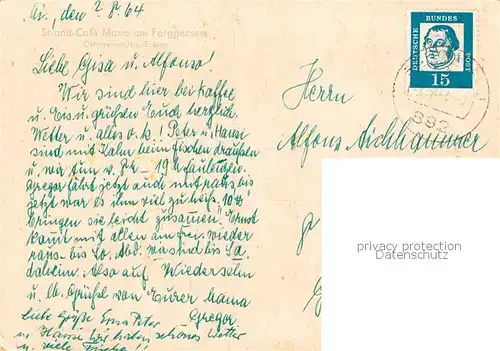 den 2.8.64
Strand-Café Maria am Forggensee
Liebe Gisa u. Alfonso!
Wir sind hier bei Kaffee
u. Eis u. grüßen Euch herzlich.
Wetter u. alles o.k.! Peter u. Hansi
sind mit Kahn beim fischen draußen
u. wir tun v. 
Gregor fährt jetzt auch mit raus, bis
jetzt war es ihm viel zu heiß.
bringen sie leicht zusammen. Ernst
kommt mit allen am frei. wieder
raus bis So. Abd. wir sind bis Sa.
daheim. Also auf Wiedersehn
u. lb. Grüße von Eurer Mama
liebe Grüße Erna Peter Gregor
u. Hansi Wir haben schönes Wetter
u. viele Fische!!
DEUTSCHE BUNDES POST
15
892
Herrn
Alfons Aichhammer
privacy protection
Datenschutz